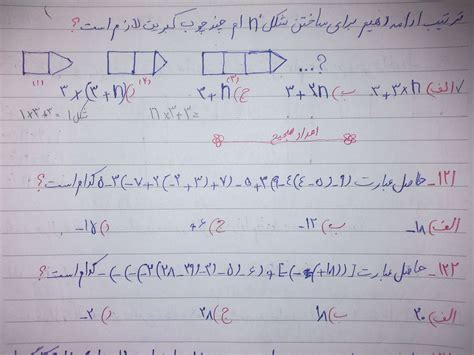 ترتیب ادامه دهیم برای ساختن شکل n ام چند چوب کبریت لازم است؟
(۱) (۲) (۳) ...؟
الف) ۳+۳×n ب) ۳+۲n ج) ۳+n د) ۳×(۳+n)
شکل ۱ = ۱×۳+۳ n×۳+۳=
اعداد صحیح
۱۲۱_ حاصل عبارت ۵-۳(-۷+۲(-۲+۳)+۷)-۵+۳(۹-۴(۴-۵)-۹) کدام است؟
الف) -۱۸ ب) -۱۲ ج) +۶ د) -۱۵
۱۲۲_ حاصل عبارت کدام است؟
الف) ۲۰ ب) ۱۸ ج) ۲۸ د) -۲۰